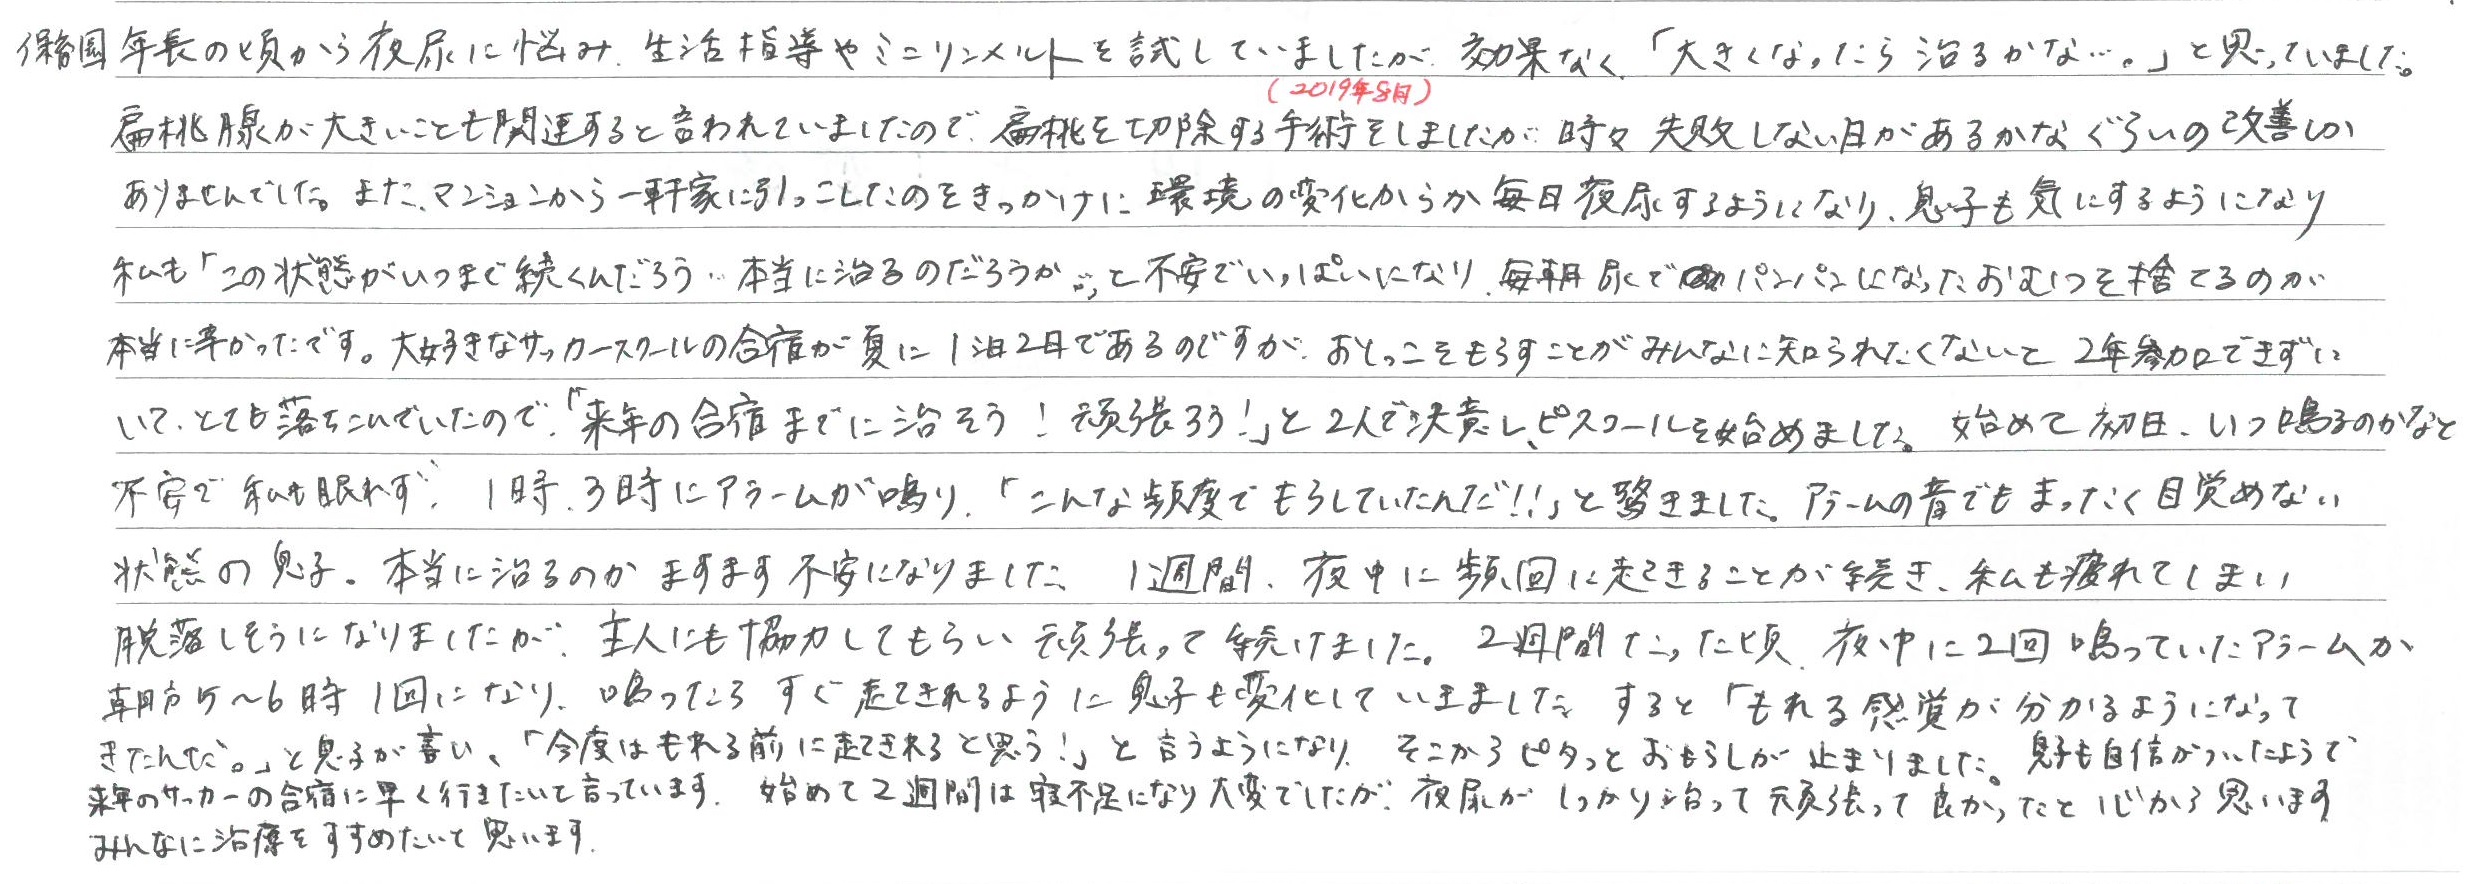 保育園年長の頃から夜尿に悩み、生活指導やミニリンメルトを試していましたが、効果なく、「大きくなったら治るかな…。」と思っていました。
(2019年8月)
扁桃腺が大きいことも関連すると言われていましたので、扁桃を切除する手術をしましたが、時々失敗しない日があるかなぐらいの改善しか
ありませんでした。また、マンションから一軒家に引っこしたのをきっかけに環境の変化からか毎日夜尿するようになり、息子も気にするようになり
私も「この状態がいつまで続くんだろう…本当に治るのだろうか…」と不安でいっぱいになり、毎朝尿でパンパンになったおむつを捨てるのが
本当に辛かったです。大好きなサッカースクールの合宿が夏に1泊2日であるのですが、おしっこをもらすことがみんなに知られたくないと2年参加できずに
いて、とても落ちこんでいたので、「来年の合宿までに治そう!頑張ろう!」と2人で決意し、ピスクールを始めました。始めて初日、いつ鳴るのかなと
不安で私も眠れず、1時、3時にアラームが鳴り、「こんな頻度でもらしていたんだ!!」と驚きました。アラームの音でもまったく目覚めない
状態の息子。本当に治るのかますます不安になりました。1週間、夜中に頻回に起きることが続き、私も疲れてしまい
脱落しそうになりましたが、主人にも協力してもらい頑張って続けました。2週間たった頃、夜中に2回鳴っていたアラームが
朝方5〜6時1回になり、鳴ったらすぐ起きれるように息子も変化していきました。すると「もれる感覚が分かるようになって
きたんだ。」と息子が言い、「今度はもれる前に起きれると思う!」と言うようになり、そこからピタッとおもらしが止まりました。息子も自信がついたようで
来年のサッカーの合宿に早く行きたいと言っています。始めて2週間は寝不足になり大変でしたが、夜尿がしっかり治って頑張って良かったと心から思います
みんなに治療をすすめたいと思います。